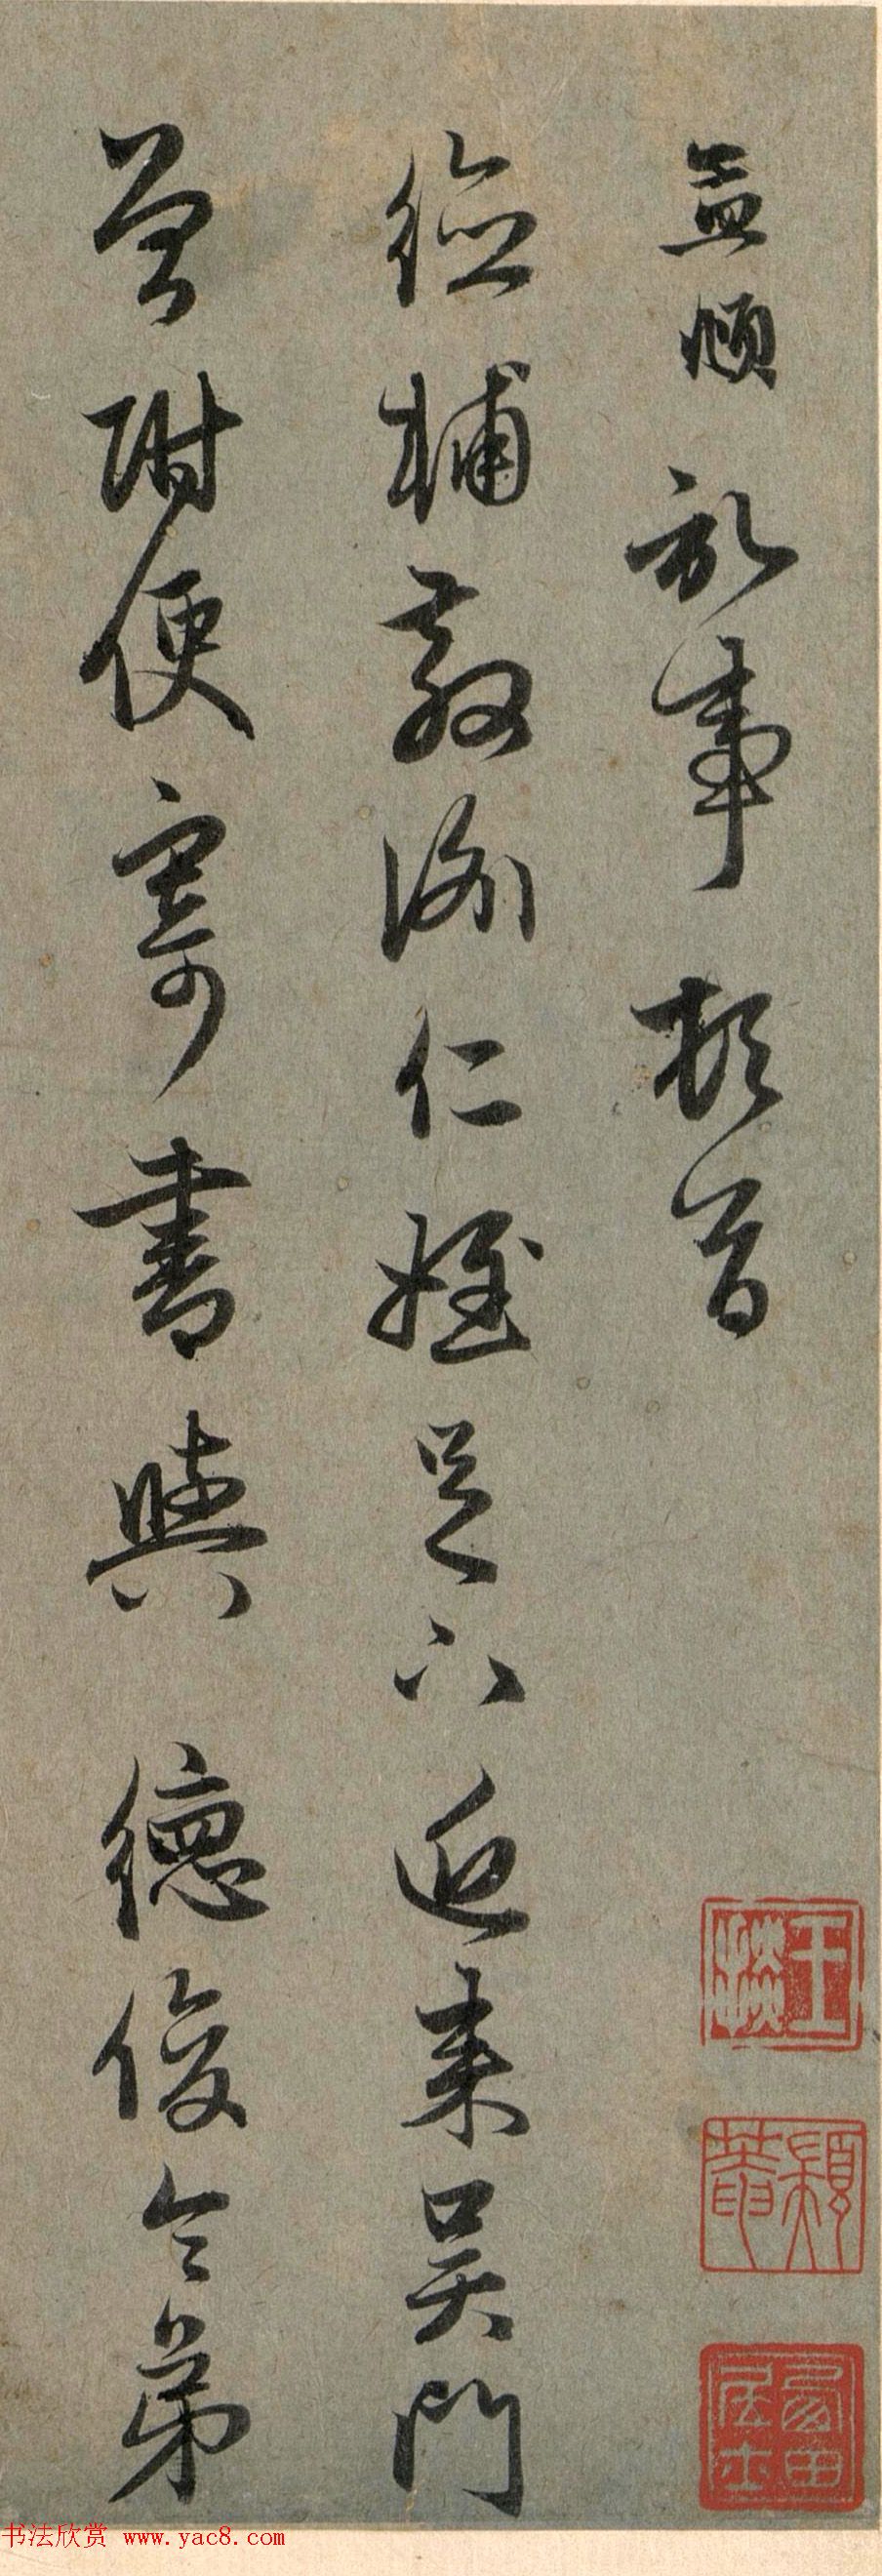 孟頫記事頓首
德輔教諭仁姪足下近來吳門
曾附便寄書與德俊令弟
書法欣赏 www.yac8.com